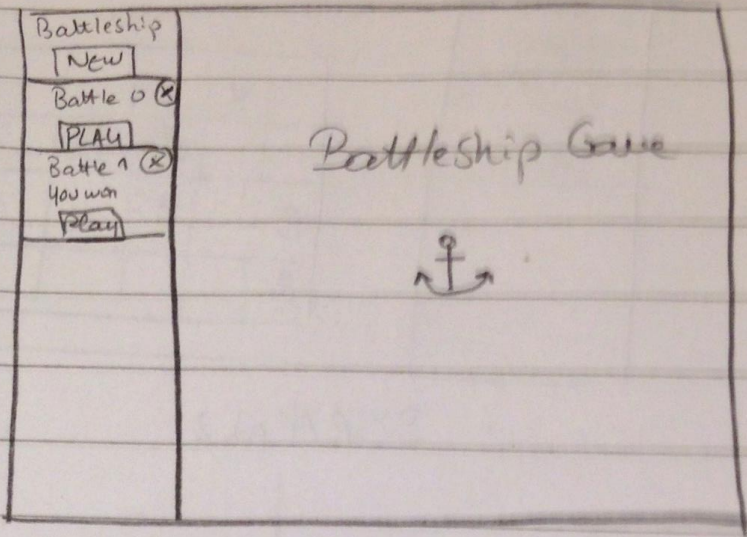 Battleship
NEW
Battle 0 X
PLAY
Battle 1 X
You won
Play
Battleship Game